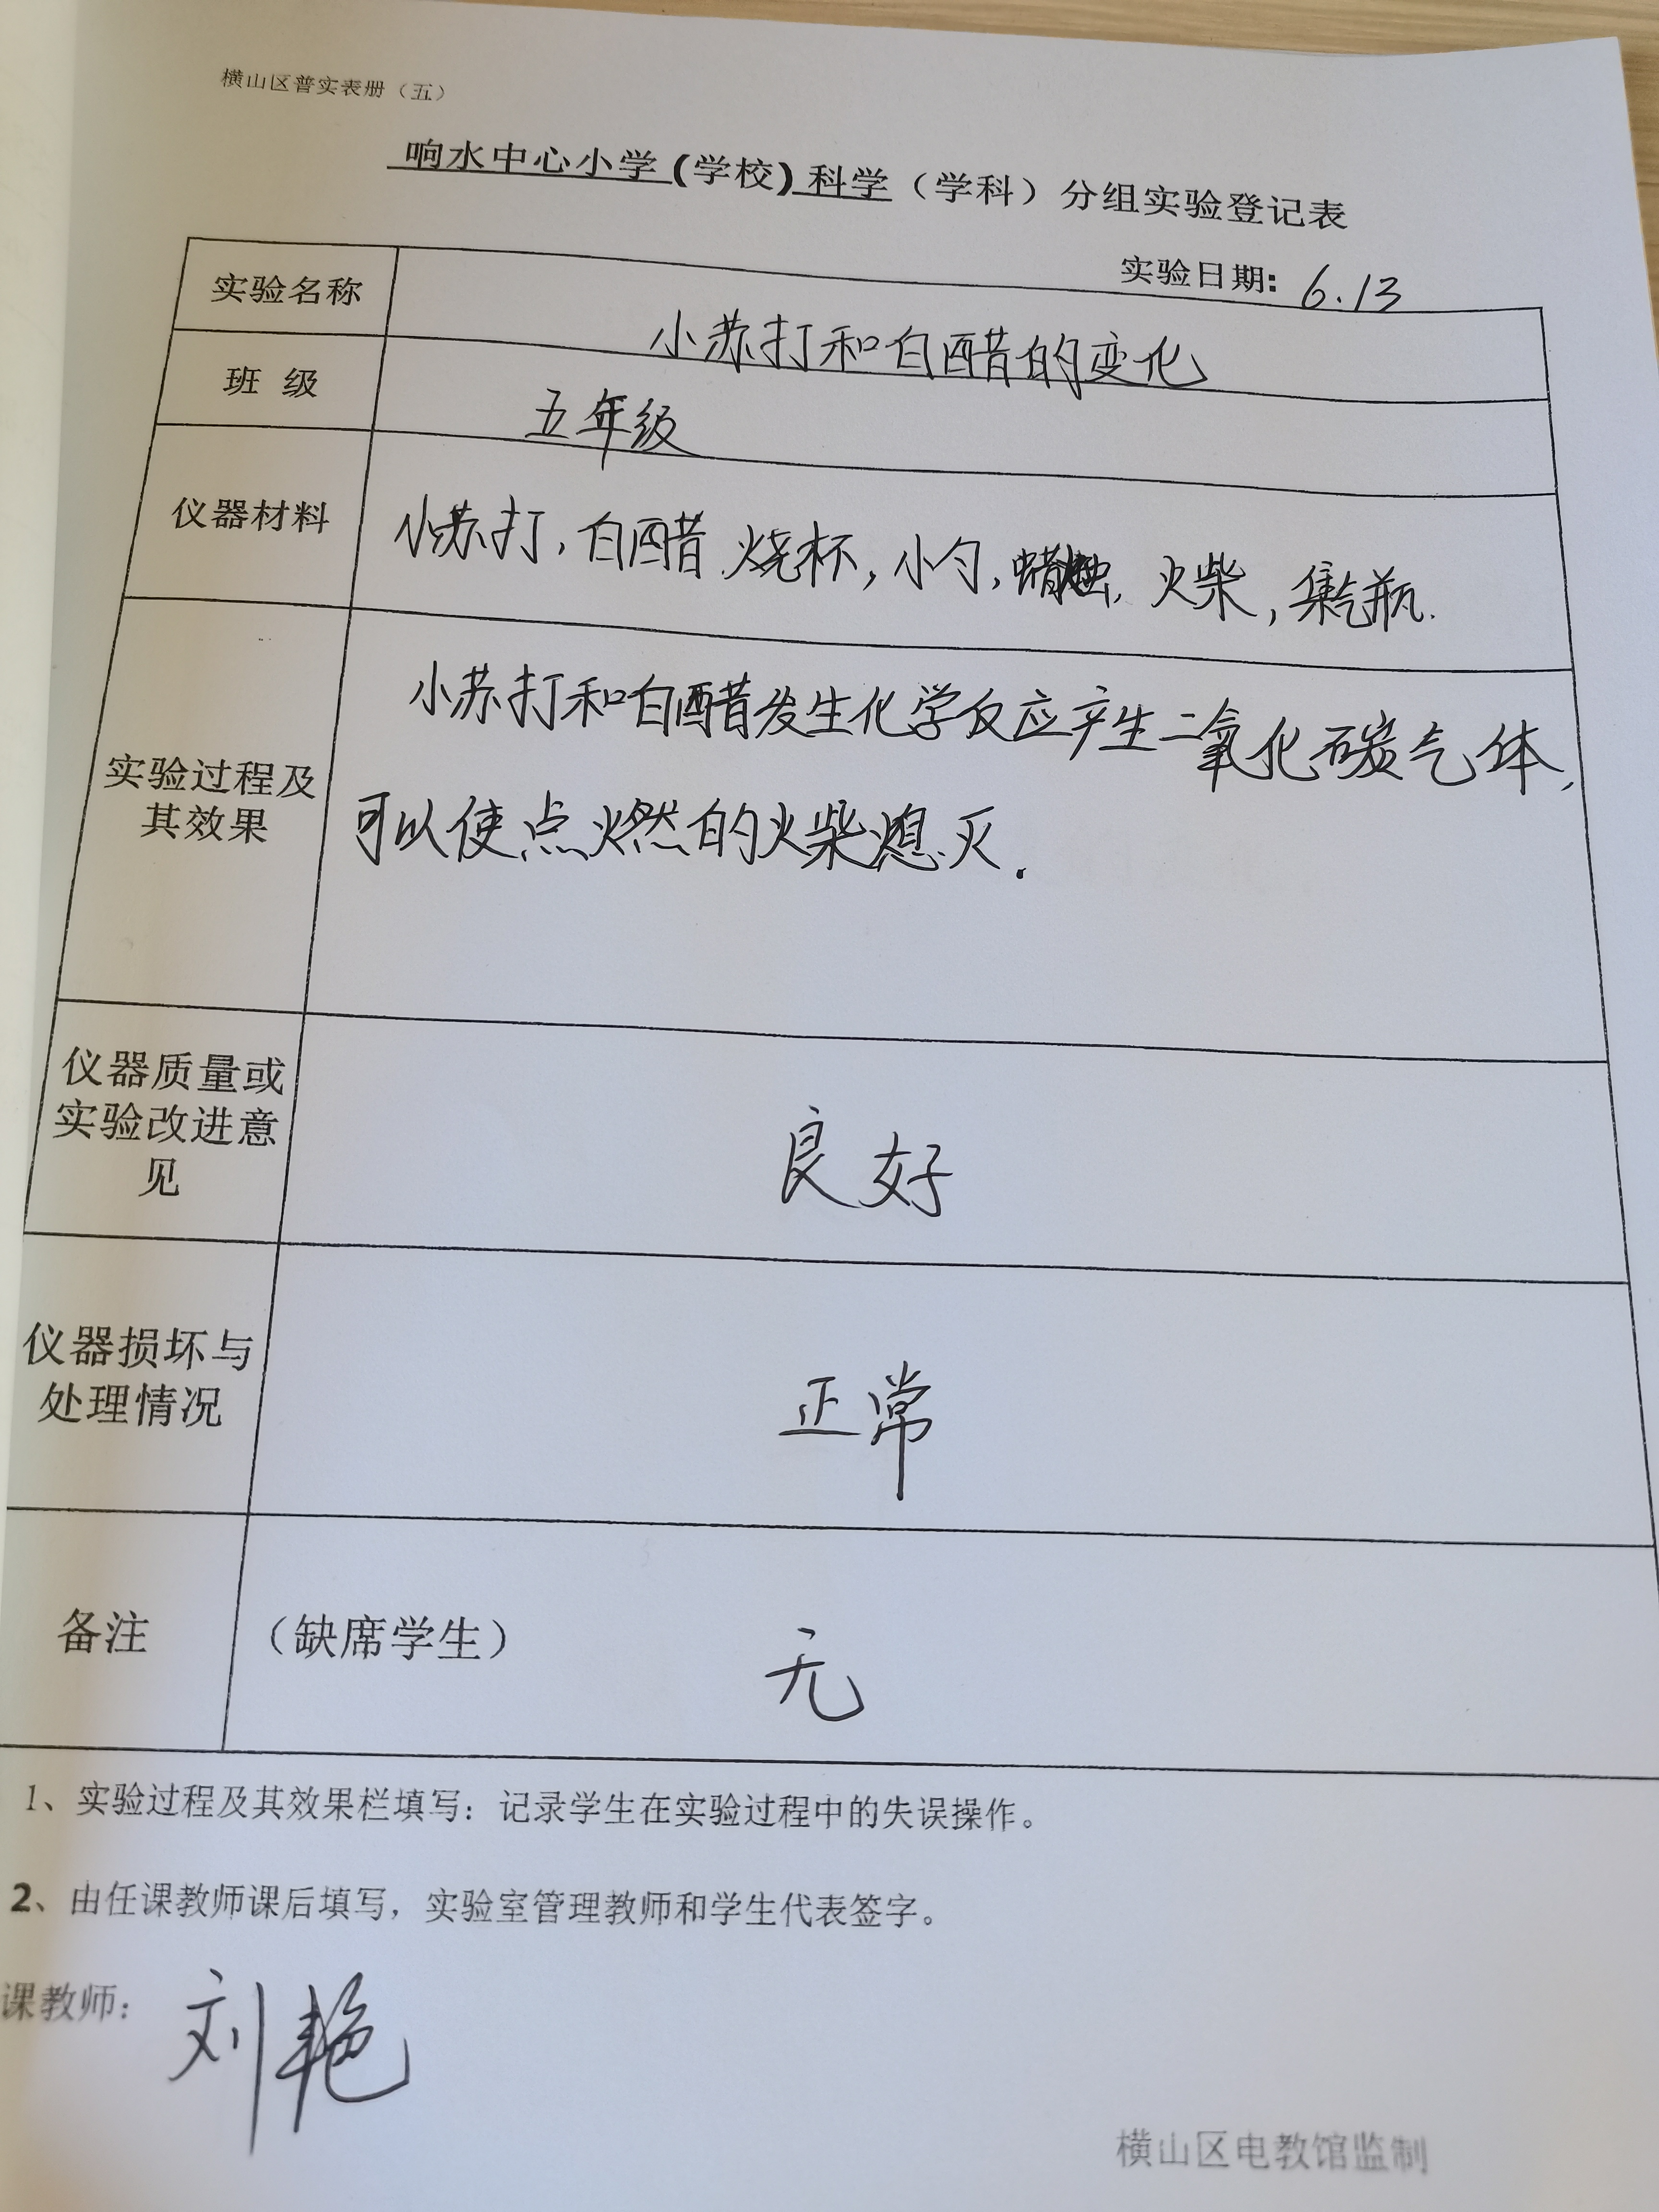 横山区普实表册（五）
响水中心小学(学校)科学（学科）分组实验登记表
实验日期: 6.13
实验名称 小苏打和白醋的变化
班 级 五年级
仪器材料 小苏打,白醋.烧杯,小勺,蜡烛,火柴,集气瓶.
小苏打和白醋发生化学反应产生二氧化碳气体,
实验过程及
其效果
可以使点燃的火柴熄灭.
仪器质量或
实验改进意
见
良好
仪器损坏与
处理情况
正常
备注 （缺席学生） 无
1、实验过程及其效果栏填写：记录学生在实验过程中的失误操作。
2、由任课教师课后填写，实验室管理教师和学生代表签字。
课教师: 刘艳
横山区电教馆监制